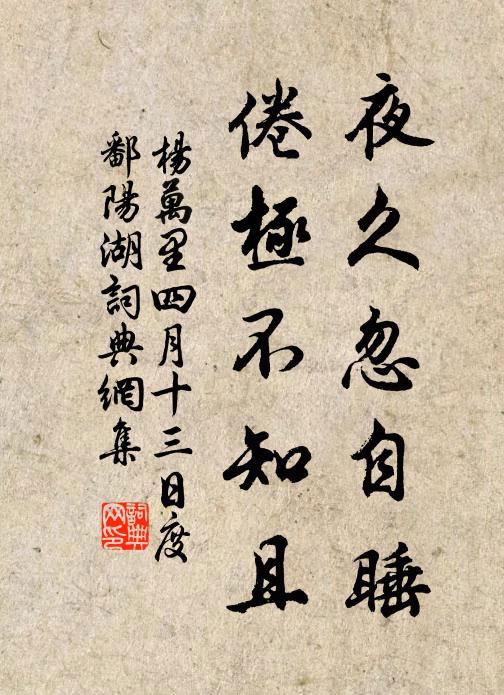 夜久忽自睡
倦極不知且
楊萬里四月十三日度
鄱陽湖詞典網集
詞典
网印